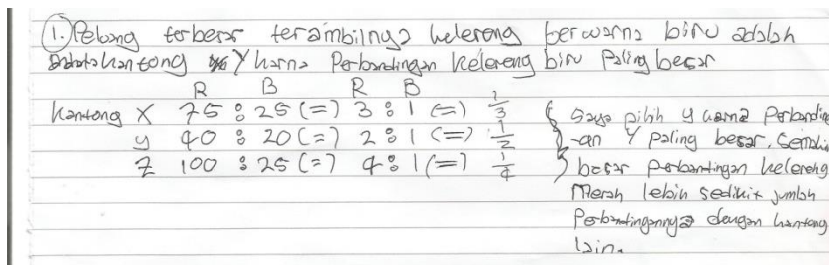 1. Peluang terbesar terambilnya kelereng berwarna biru adalah
kantong Y karna Perbandingan kelereng biru Paling besar
R B R B
Kantong X 75 : 25 (=) 3 : 1 (=) 1/3
y 40 : 20 (=) 2 : 1 (=) 1/2
z 100 : 25 (=) 4 : 1 (=) 1/4
Saya pilih y karna Perbanding
-an Y paling besar. Semakin
besar perbantingan kelereng
Merah lebih sedikit jumlah
Perbandingannya dengan kantong
lain.